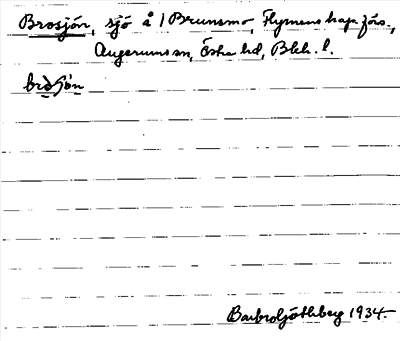 Brosjön, sjö å 1 Brunsmo, Flymens kap. förs.,
Augerums sn, Östra hd, Blek. l.
Barbro Ljöthberg 1934.